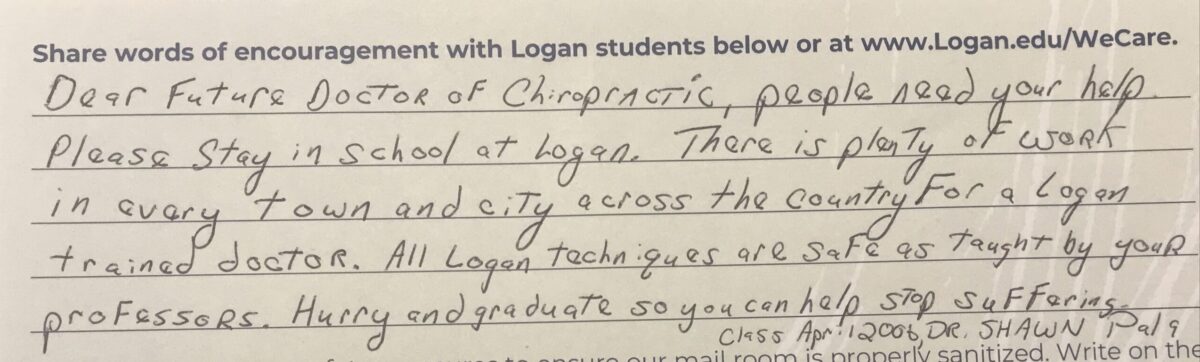 Share words of encouragement with Logan students below or at www.Logan.edu/WeCare.
Dear Future Doctor of Chiropractic, people need your help.
Please Stay in school at Logan. There is plenty of work
in every town and city across the country For a Logan
trained doctor. All Logan techniques are safe as taught by your
professors. Hurry and graduate so you can help stop suffering.
Class April 2006, DR. SHAWN
our mail room is properly sanitized. Write on the